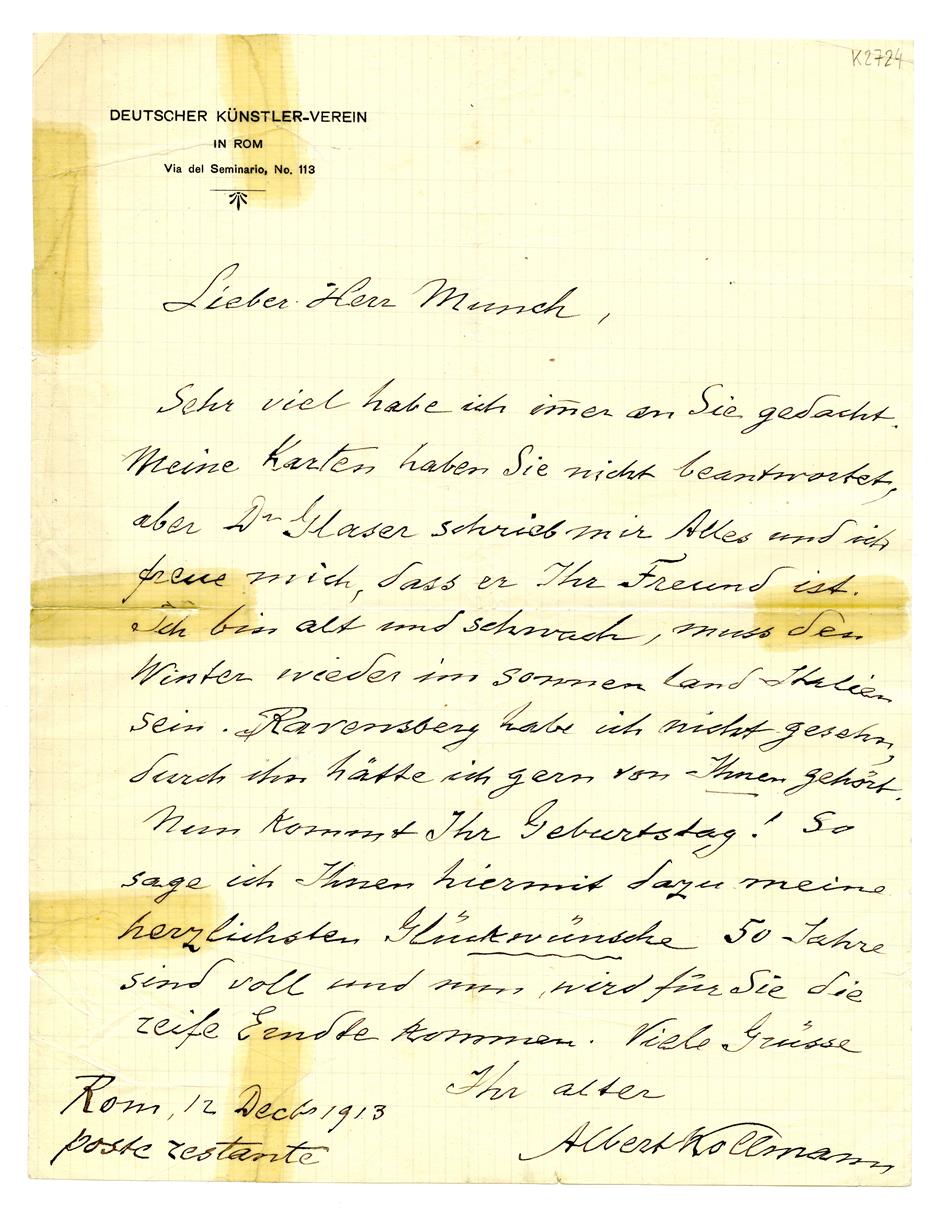 K2724
DEUTSCHER KÜNSTLER-VEREIN
IN ROM
Via del Seminario, No. 113
Lieber Herr Munch,
Sehr viel habe ich im̅er an Sie gedacht.
Meine Karten haben Sie nicht beantwortet,
aber Dr Glaser schrieb mir Alles und ich
freue mich, dass er Ihr Freund ist.
Ich bin alt und schwach, muss den
Winter wieder im Sonnen land Italien
sein. Ravensberg habe ich nicht gesehn,
durch ihn hätte ich gern von Ihnen gehört.
Nun kommt Ihr Geburtstag! So
sage ich Ihnen hiermit dazu meine
herzlichsten Glückwünsche 50 Jahre
sind voll und nun wird für Sie die
reife Erndte kommen. Viele Grüsse
Ihr alter
Albert Kollmann
Rom, 12 Decbr 1913
poste restante